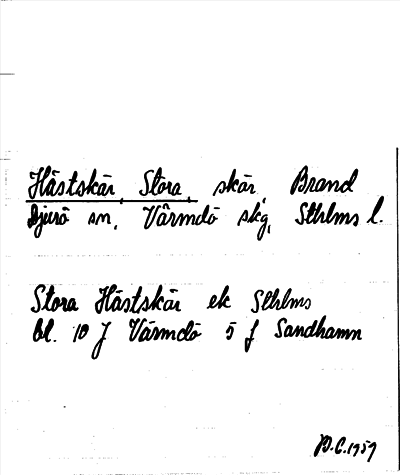 Hästskär, Stora, skär, Brand
Djurö sn, Värmdö skg, Sthlms l.
Stora Hästskär ek Sthlms
bl. 10 J Värmdö 5 f Sandhamn
B.C. 1959